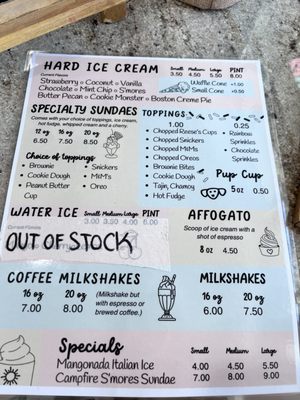 HARD ICE CREAM Small Medium Large PINT
Current Flavors 3.50 4.50 5.50 8.00
Strawberry o Coconut o Vanilla
Chocolate o Mint Chip o S'mores
Butter Pecan o Cookie Monster o Boston Creme Pie
Waffle Cone +1.00
Small Cone +.50
SPECIALTY SUNDAES
Comes with your choice of toppings, ice cream,
hot fudge, whipped cream and a cherry.
12 oz 16 oz 20 oz
6.50 7.50 8.50
Choice of toppings
• Brownie
• Cookie Dough
• Peanut Butter
Cup
• Snickers
• M&M's
• Oreo
TOPPINGS
1.00
• Chopped Reese's Cups
• Chopped Snickers
• Chopped M&M's
• Chopped Oreos
• Brownie Bites
• Cookie Dough
• Tajin, Chamoy
• Hot Fudge
0.25
• Rainbow
Sprinkles
• Chocolate
Sprinkles
Pup Cup
5oz 0.50
WATER ICE Small Medium Large PINT
3.00 4.50 6.00
OUT OF STOCK
AFFOGATO
Scoop of ice cream with a
shot of espresso
8 oz 4.50
COFFEE MILKSHAKES
16 oz 20 oz
7.00 8.00
(Milkshake but
with espresso or
brewed coffee.)
MILKSHAKES
16 oz 20 oz
6.00 7.50
Specials Small Medium Large
Mangonada Italian Ice 4.00 4.50 5.50
Campfire S'mores Sundae 7.00 8.00 9.00